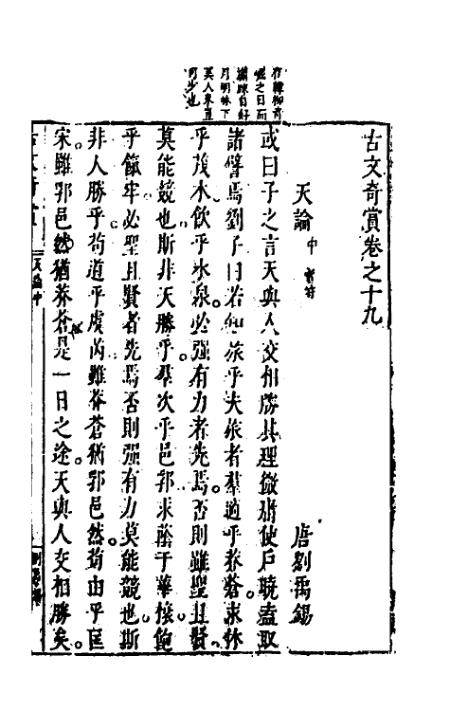 在韓柳有
之日而
疎自好
月明林下
美人來且
可步也
古文奇賞卷之十九
天論中
唐劉禹錫
或曰子之言天與人交相勝其理微庸使戶曉盍取
諸譬焉劉子曰若知旅乎夫旅者羣適乎莽蒼求休
乎茂木飲乎水泉必强有力者先焉否則雖聖且賢
莫能競也斯非天勝乎羣次乎邑郛求䕃于華榱飽
乎餼牢必聖且賢者先焉否則强有力莫能競也斯
非人勝乎苟道乎虞芮雖莽蒼猶郛邑然苟由乎匡
宋雖郛邑然猶莽蒼是一日之途天與人交相勝矣